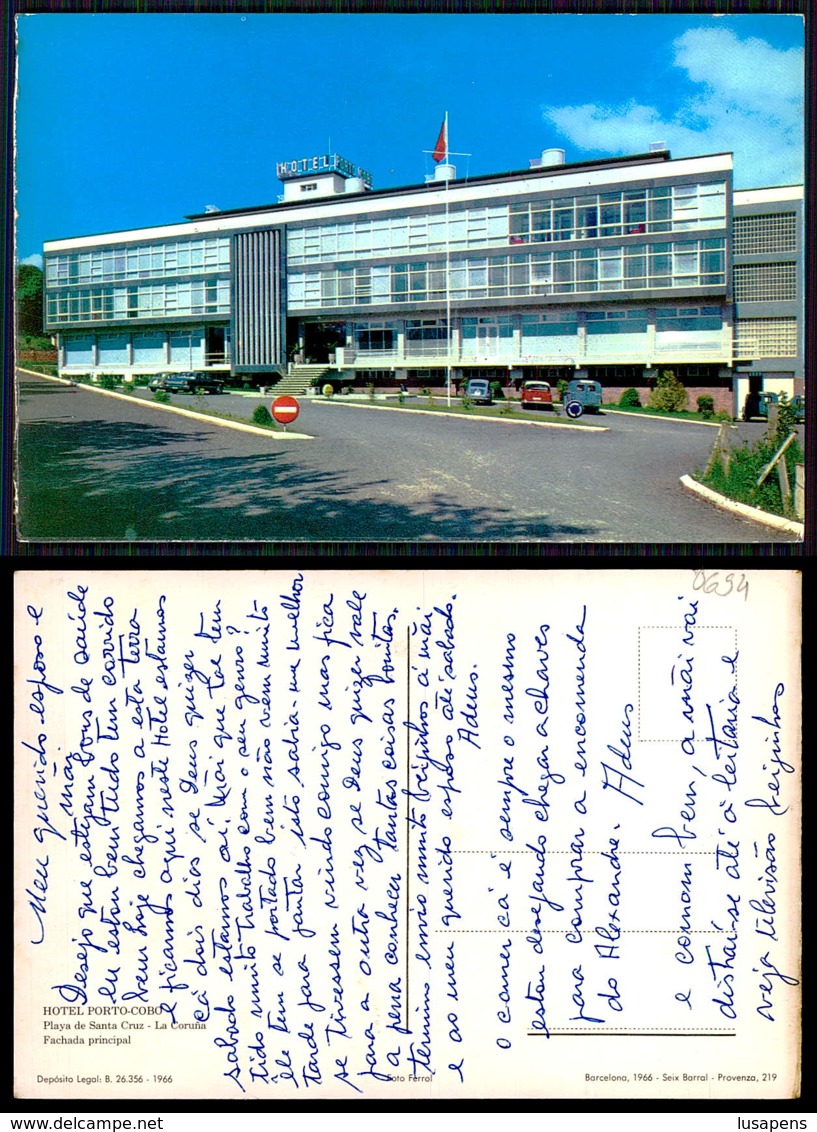 HOTEL PORTO COBO
0694
Meu querido esposo e
mãi
Desejo que estejam bons de saúde
eu estou bem tudo tem corrido
bem hoje chegamos a esta terra
e ficamos aqui neste Hotel estamos
cá dois dias se Deus quizer
sabado estamos aí. Mãi que tal tem
tido muito trabalho com o seu genro?
êle tem se portado bem não vem muito
tarde para jantar isto sabia-me melhor
se tivessem vindo comigo mas fica
para a outra vez se Deus quizer vale
a pena conhecer tantas coisas bonitas.
termino envio muitos beijinhos á mãi
e ao meu querido esposo até sabado.
Adeus.
o comer cá é sempre o mesmo
estou desejando chegar a chaves
para comprar a encomenda
do Alexandre. Adeus
e comam bem, a mãi vai
distrai-se até á leitaria e
veja televisão beijinhos
HOTEL PORTO-COBO
Playa de Santa Cruz - La Coruña
Fachada principal
Depósito Legal: B. 26.356 - 1966
Foto Ferrol
Barcelona, 1966 - Seix Barral - Provenza, 219
lusapens